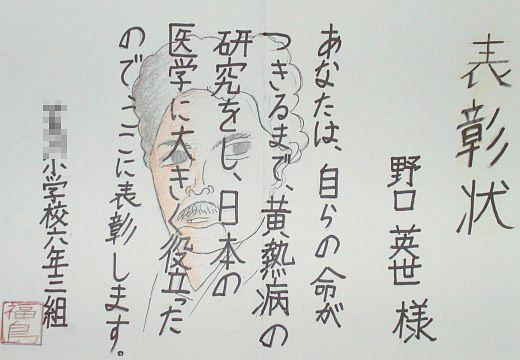 表彰状
野口英世様
あなたは、自らの命が
つきるまで、黄熱病の
研究をし、日本の
医学に大きく役立った
のでここに表彰します。
小学校六年三組
福島